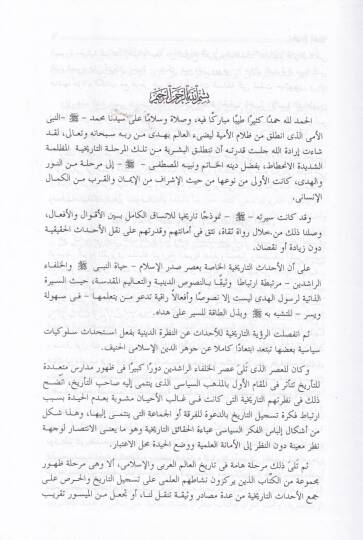 بسم الله الرحمن الرحيم
الحمد لله حمدًا كثيرًا طيبًا مباركًا فيه، وصلاة وسلامًا على سيدنا محمد – ﷺ –النبى
الأمى الذى انطلق من ظلام الأمية ليضىء العالم بهدى من ربه سبحانه وتعالى، لقد
شاءت إرادة الله جلت قدرته أن تنطلق البشرية من تلك المرحلة التاريخية المظلمة
الشديدة الانحطاط، بفضل دينه الخاتم ونبيه المصطفى – ﷺ – إلى مرحلة من النور
والهدى، كانت الأولى من نوعها من حيث الإشراف من الإيمان والقرب من الكمال
الإنسانى.
وقد كانت سيرته – ﷺ – نموذجًا تاريخيا للاتساق الكامل بين الأقوال والأفعال،
وصلنا ذلك من خلال رواة ثقاة، نثق فى أمانتهم وقدرتهم على نقل الأحداث الحقيقية
دون زيادة أو نقصان.
على أن الأحداث التاريخية الخاصة بعصر صدر الإسلام – حياة النبى ﷺ والخلفاء
الراشدين – مرتبطة ارتباطا وثيقًا بالنصوص الدينية والتعاليم المقدسة، حيث السيرة
الذاتية لرسول الهدى ليست إلا نصوصًا وأفعالاً راقية تدعو من يتعلمها – فى سهولة
ويسر – للتشبه به ﷺ وبذل الطاقة للسير على هداه.
ثم انفصلت الرؤية التاريخية للأحداث عن النظرة الدينية بفعل استحداث سلوكيات
سياسية بعضها تبتعد ابتعادًا كاملا عن جوهر الدين الإسلامى الحنيف.
وكان للعصر الذى تلى عصر الخلفاء الراشدين دورًا كبيرًا فى ظهور مدارس متعددة
للتأريخ تتأثر فى المقام الأول بالمذهب السياسى الذى ينتمى إليه صاحب التأريخ، اتضح
ذلك فى نظرتهم التاريخية التى كانت فى غالب الأحيان مشوبة بعدم الحيدة بسبب
ارتباط فكرة تسجيل التاريخ بالدعوة للفرقة أو الجماعة التى ينتمى إليها، وهذا شكل
من أشكال إلباس الفكر السياسى عباءة الحقائق التاريخية وهو ما يعنى الانتصار لوجهة
نظر معينة دون النظر إلى الأمانة العلمية ووضع الحيدة محل الاعتبار.
ثم تلى ذلك مرحلة هامة فى تاريخ العالم العربى والإسلامى، ألا وهى مرحلة ظهور
مجموعة من الكتّاب الذين يركزون نشاطهم العلمى على تسجيل التاريخ والحرص على
جمع الأحداث التاريخية من عدة مصادر وثيقة تنقل لنا، أو تجعل من الميسور تقريب